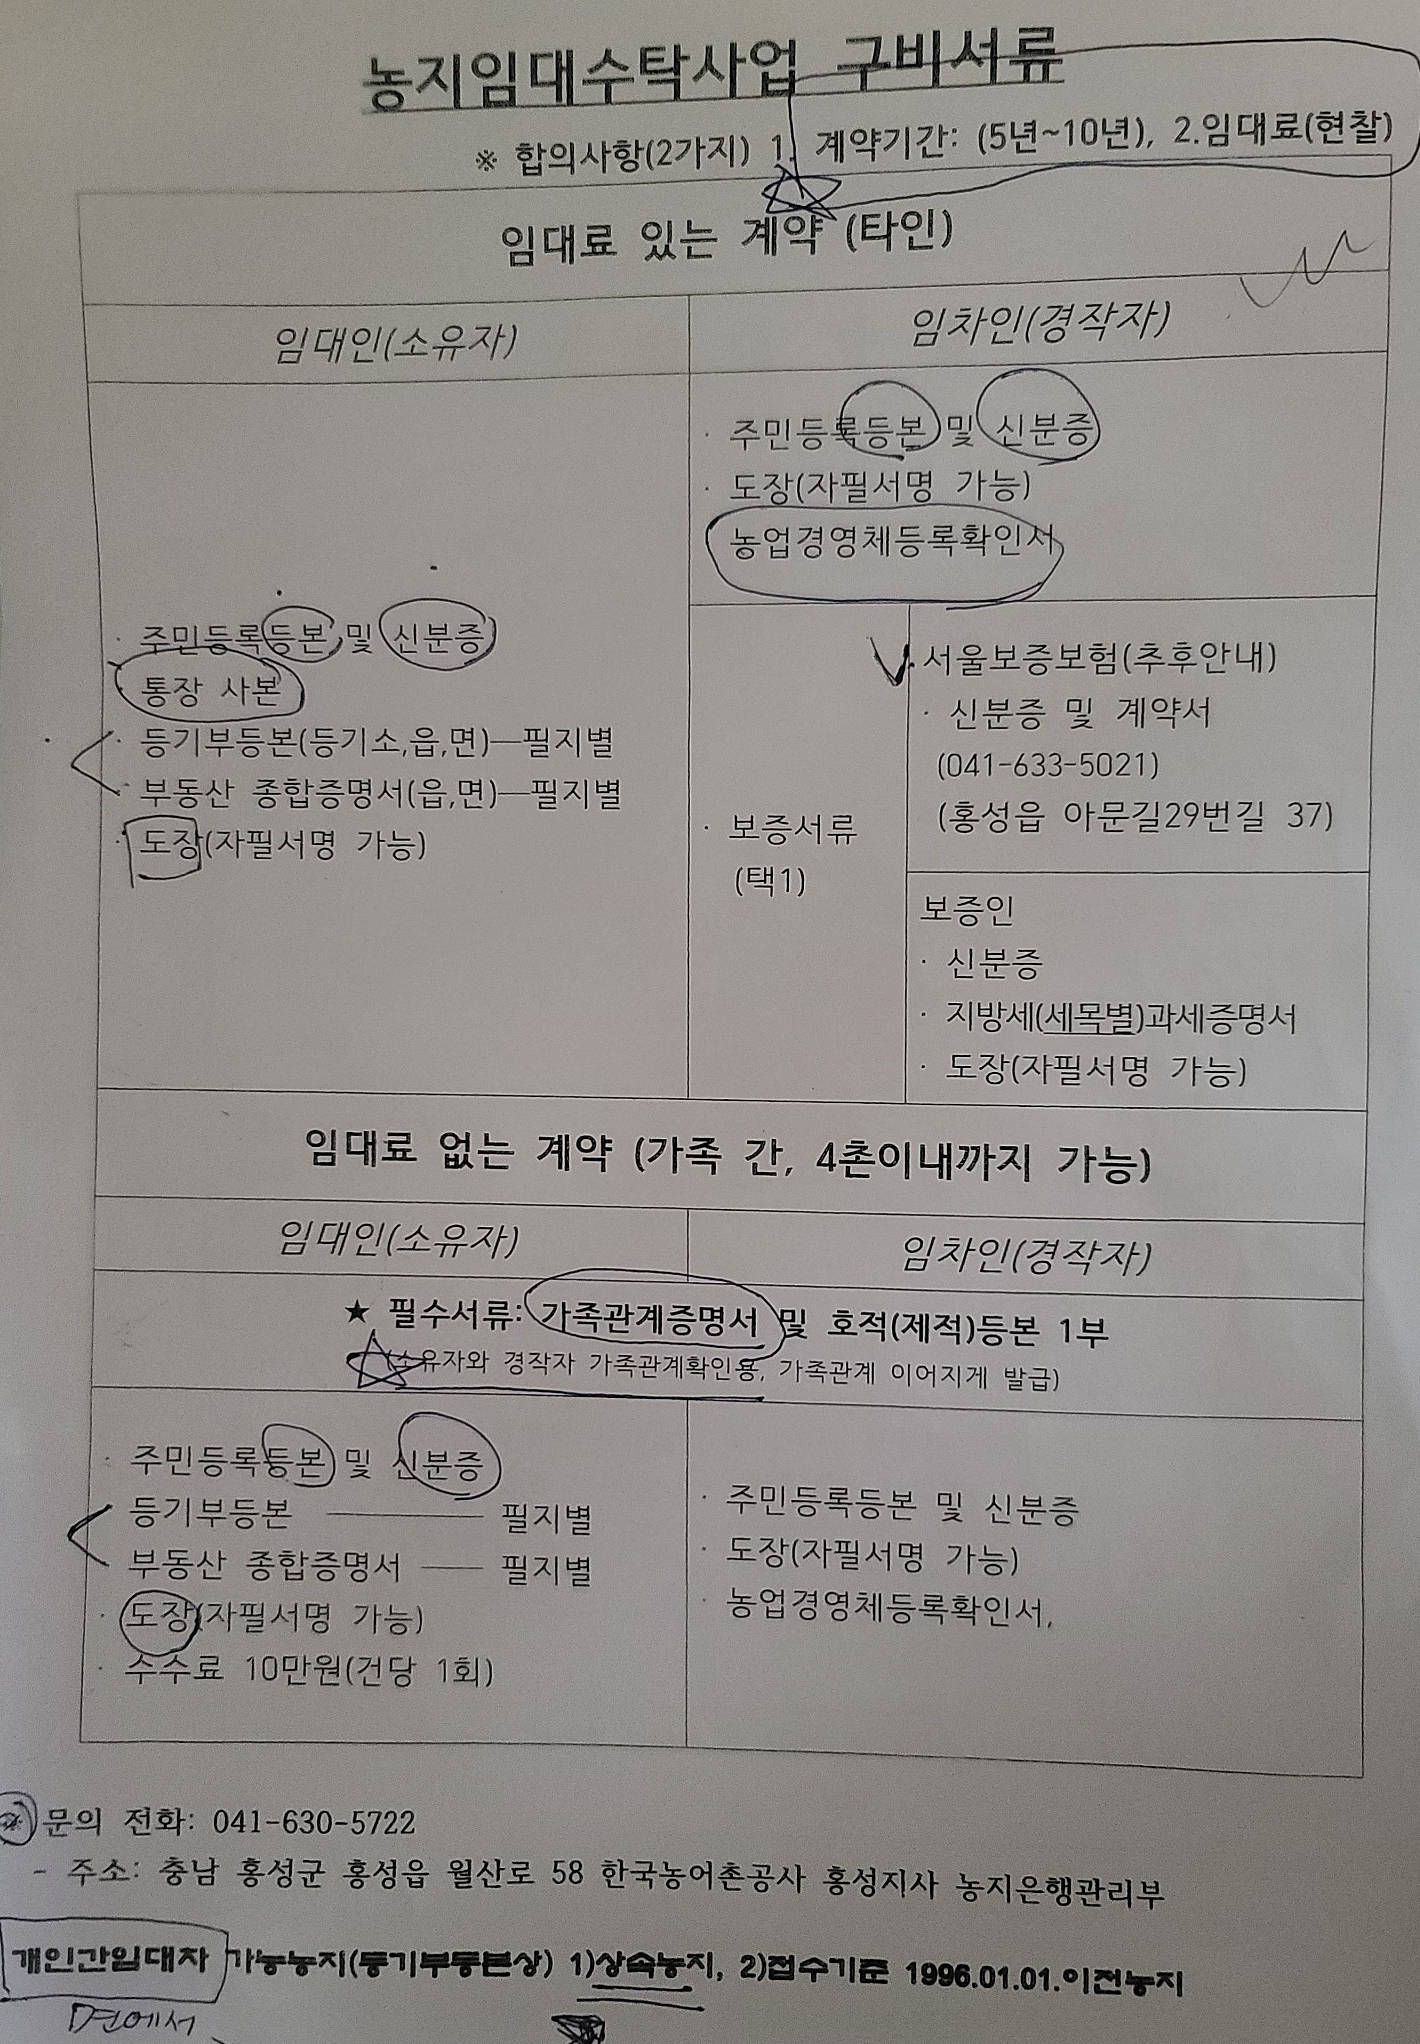 농지임대수탁사업 구비서류
※ 합의사항(2가지) 1. 계약기간: (5년~10년), 2.임대료(현찰)
임대료 있는 계약 (타인)
임대인(소유자)
임차인(경작자)
· 주민등록등본 및 신분증
통장 사본
· 등기부등본(등기소,읍,면)—필지별
· 부동산 종합증명서(읍,면)—필지별
· 도장(자필서명 가능)
· 주민등록등본 및 신분증
· 도장(자필서명 가능)
농업경영체등록확인서
· 보증서류
(택1)
서울보증보험(추후안내)
· 신분증 및 계약서
(041-633-5021)
(홍성읍 아문길29번길 37)
보증인
· 신분증
· 지방세(세목별)과세증명서
· 도장(자필서명 가능)
임대료 없는 계약 (가족 간, 4촌이내까지 가능)
임대인(소유자)
임차인(경작자)
★ 필수서류: 가족관계증명서 및 호적(제적)등본 1부
(소유자와 경작자 가족관계확인용, 가족관계 이어지게 발급)
· 주민등록등본 및 신분증
등기부등본 ——— 필지별
부동산 종합증명서 —— 필지별
· 도장(자필서명 가능)
· 수수료 10만원(건당 1회)
· 주민등록등본 및 신분증
· 도장(자필서명 가능)
· 농업경영체등록확인서,
※ 문의 전화: 041-630-5722
- 주소: 충남 홍성군 홍성읍 월산로 58 한국농어촌공사 홍성지사 농지은행관리부
개인간임대차 가능농지(등기부등본상) 1)상속농지, 2)접수기준 1996.01.01.이전농지
면에서